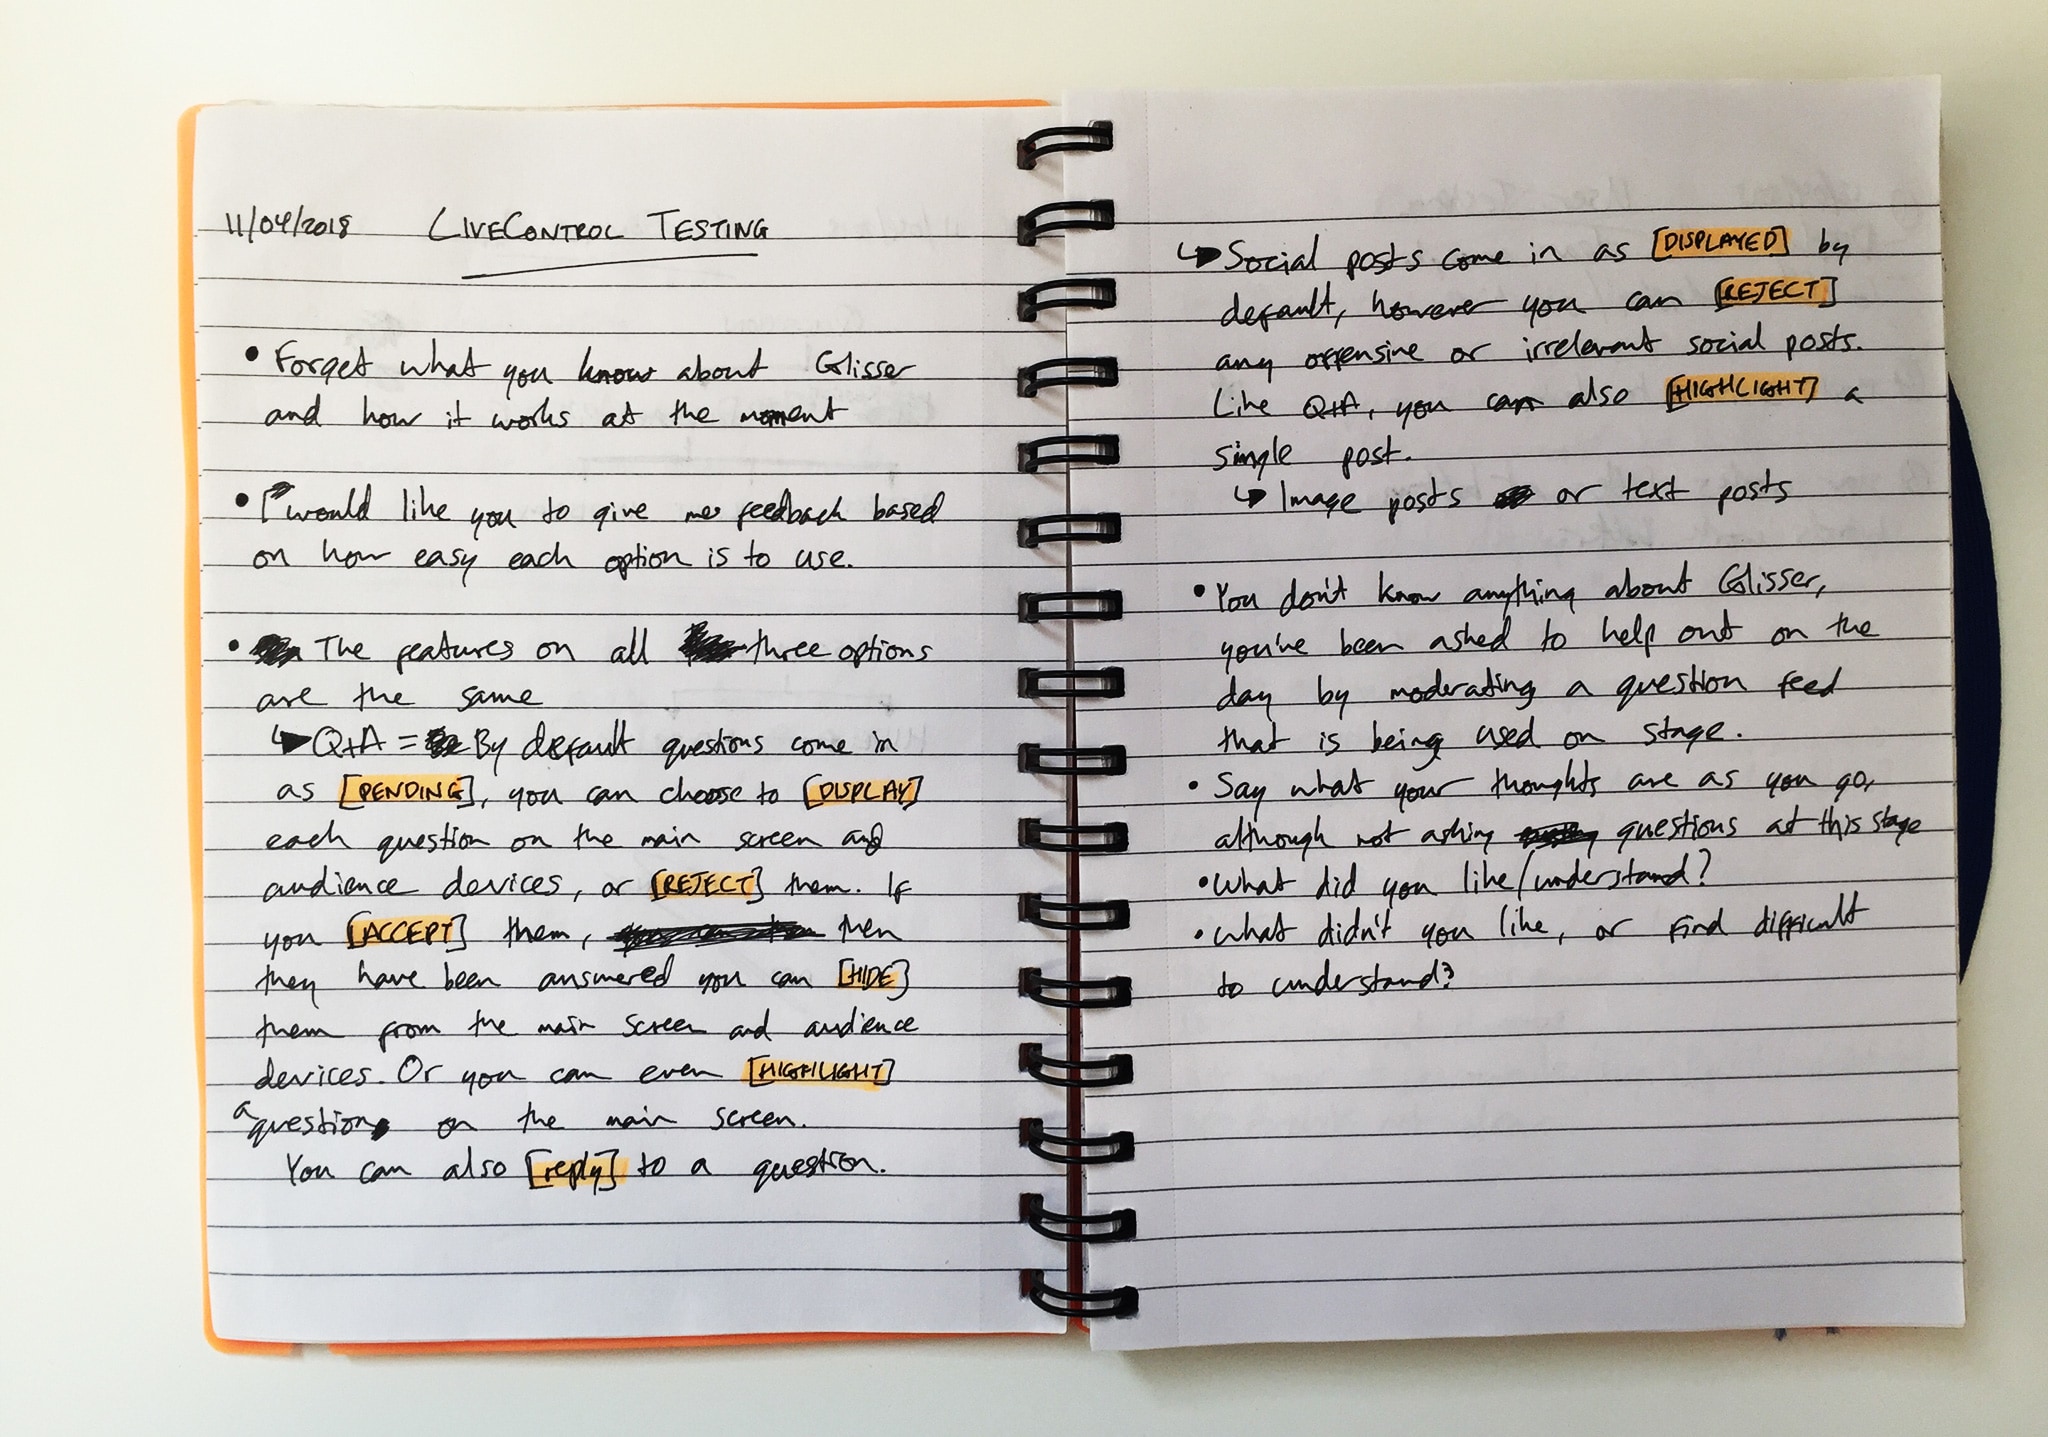 11/04/2018 LIVECONTROL TESTING
• Forget what you know about Glisser
and how it works at the moment
• I would like you to give me feedback based
on how easy each option is to use.
• The features on all three options
are the same
↳ Q+A = By default questions come in
as [PENDING], you can choose to [DISPLAY]
each question on the main screen and
audience devices, or [REJECT] them. If
you [ACCEPT] them, then
they have been answered you can [HIDE]
them from the main screen and audience
devices. Or you can even [HIGHLIGHT]
a question on the main screen.
You can also [reply] to a question.
↳ Social posts come in as [DISPLAYED] by
default, however you can [REJECT]
any offensive or irrelevant social posts.
Like Q+A, you can also [HIGHLIGHT] a
single post.
↳ Image posts or text posts
• You don't know anything about Glisser,
you've been asked to help out on the
day by moderating a question feed
that is being used on stage.
• Say what your thoughts are as you go,
although not asking questions at this stage
• What did you like/understand?
• What didn't you like, or find difficult
to understand?